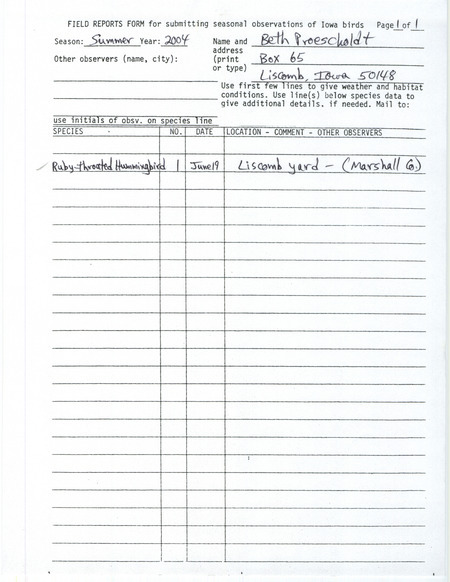 FIELD REPORTS FORM for submitting seasonal observations of Iowa birds Page 1 of 1
Season: Summer Year: 2004
Name and address (print or type)
Beth Proescholdt
Box 65
Liscomb, Iowa 50148
Other observers (name, city):
Use first few lines to give weather and habitat
conditions. Use line(s) below species data to
give additional details. if needed. Mail to:
use initials of obsv. on species line
SPECIES NO. DATE LOCATION - COMMENT - OTHER OBSERVERS
Ruby-throated Hummingbird 1 June 19 Liscomb yard - (Marshall Co.)